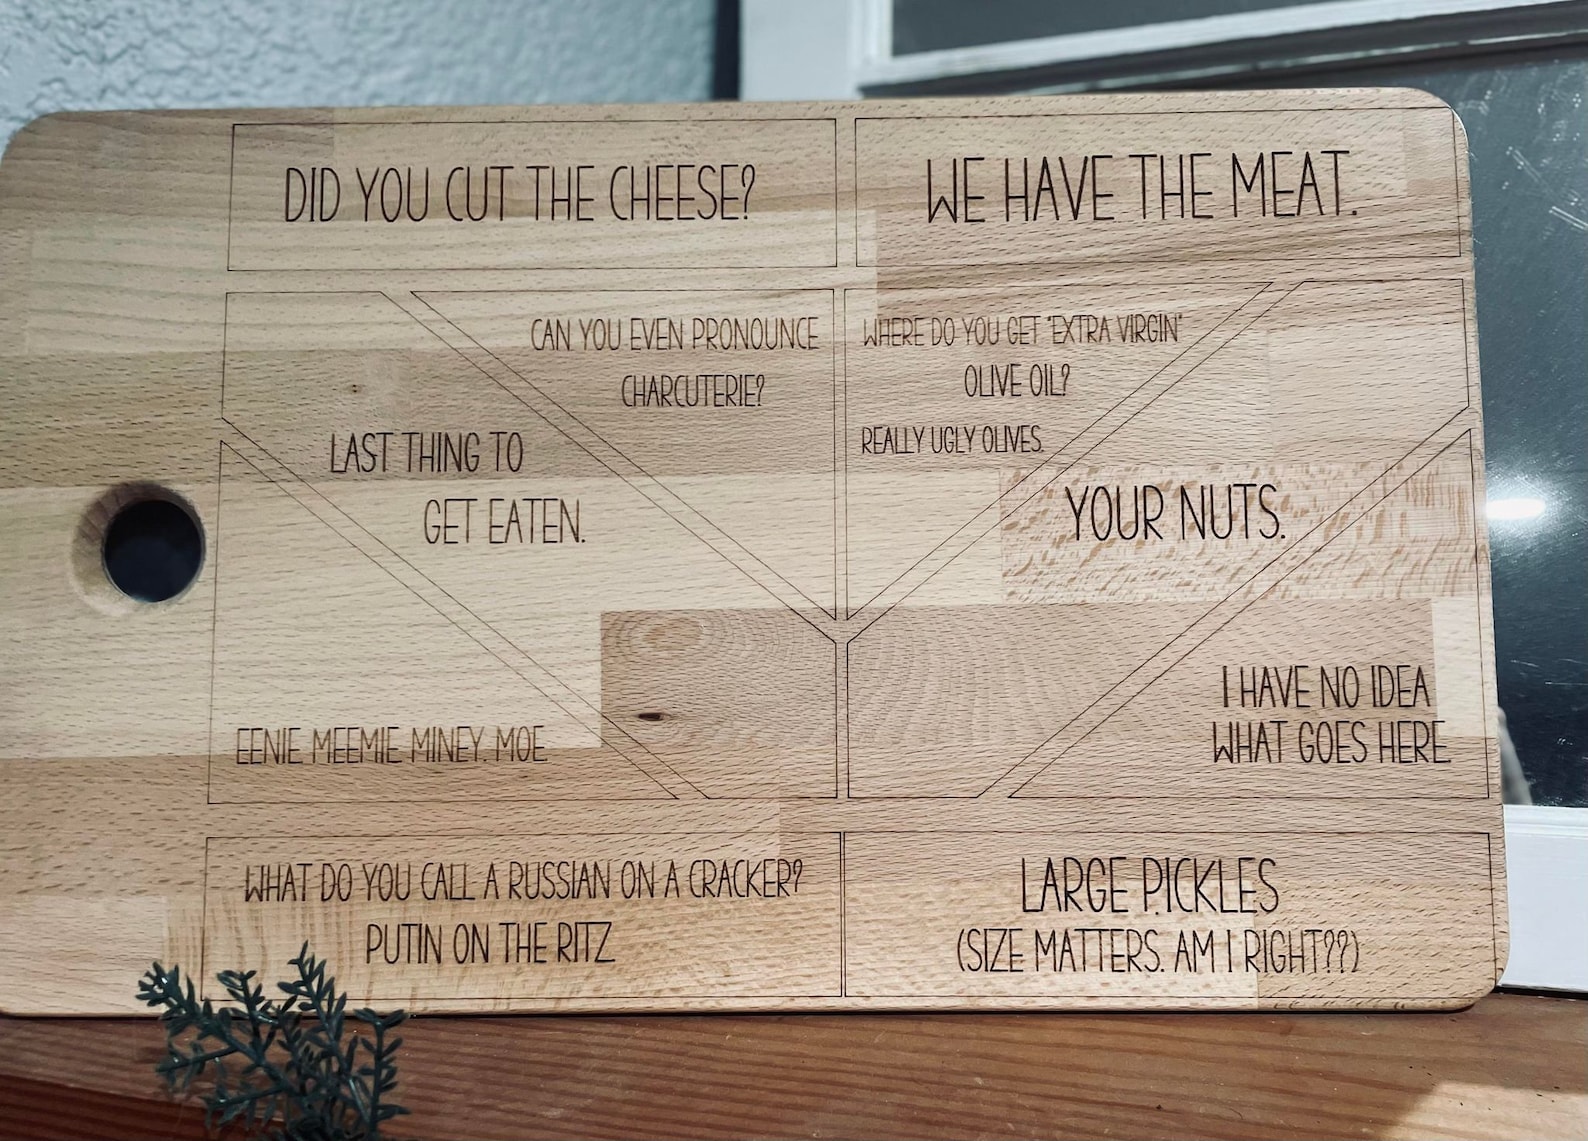 DID YOU CUT THE CHEESE?
WE HAVE THE MEAT.
CAN YOU EVEN PRONOUNCE
CHARCUTERIE?
WHERE DO YOU GET "EXTRA VIRGIN"
OLIVE OIL?
REALLY UGLY OLIVES.
LAST THING TO
GET EATEN.
YOUR NUTS.
EENIE. MEEMIE. MINEY. MOE
I HAVE NO IDEA
WHAT GOES HERE.
WHAT DO YOU CALL A RUSSIAN ON A CRACKER?
PUTIN ON THE RITZ
LARGE P.ICKLES
(SIZE MATTERS. AM I RIGHT??)